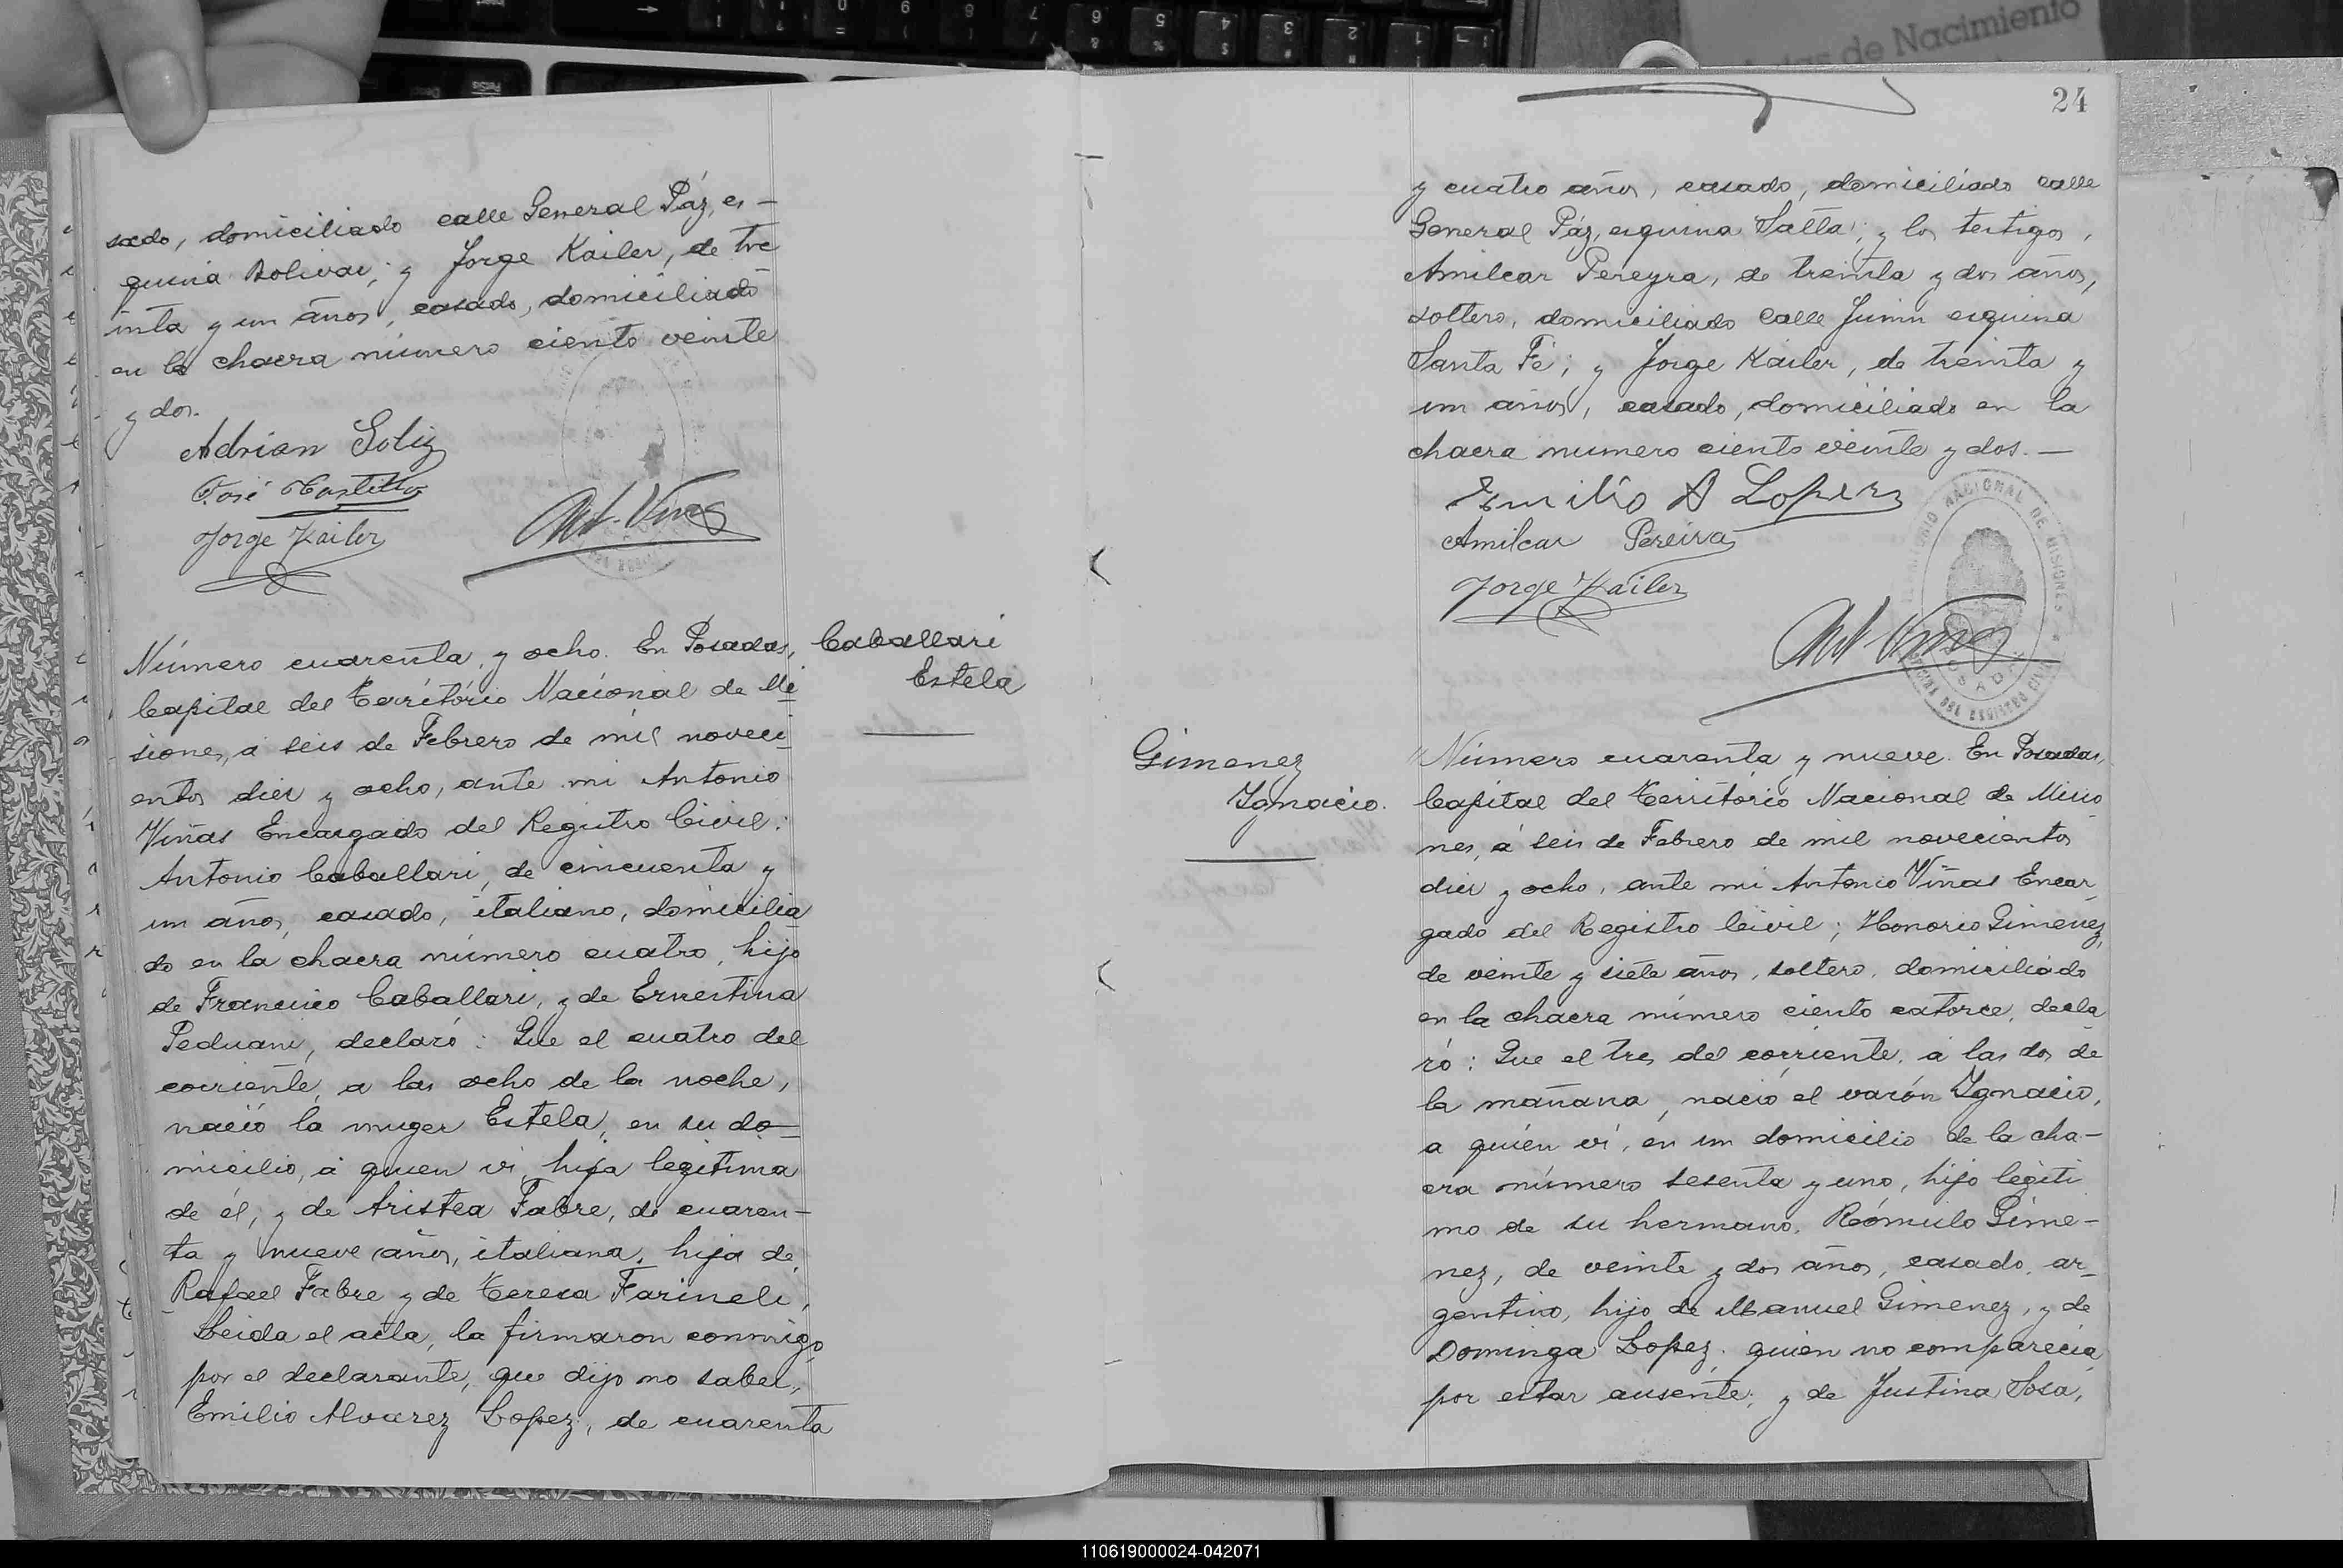 sado, domiciliado calle General Páz, es-
quina Bolivar; y Jorge Kailer, de tre
inta y un años, casado, domiciliado
en la chacra número ciento veinte
y dos.
Adrian Soliz
José Castillo
Jorge Kailer
Ant. Viñas
Número cuarenta y ocho. En Posadas,
Capital del Território Nacional de Mi
siones, a seis de Febrero de mil noveci
entos diez y ocho, ante mi Antonio
Viñas Encargado del Registro Civil:
Antonio Caballari, de cincuenta y
un años, casado, italiano, domicilia
do en la chacra número cuatro, hijo
de Francisco Caballari, y de Ernestina
Peduani, declaró: Que el cuatro del
corriente, a las ocho de la noche,
nació la muger Estela, en su do
micilio, á quien vi, hija legitima
de él, y de Aristea Fabre, de cuaren-
ta y nueve años, italiana, hija de
Rafael Fabre y de Teresa Farineli,
Leida el acta, la firmaron conmigo
por el declarante, que dijo no saber,
Emilio Alvarez Lopez, de cuarenta
Caballari
Estela
24
y cuatro años, casado, domiciliado calle
General Páz, esquina Salta; y los testigos,
Amilcar Pereyra, de treinta y dos años,
soltero, domiciliado Calle Junin esquina
Santa Fé; y Jorge Kailer, de treinta y
un años, casado, domiciliado en la
chacra numero ciento veinte y dos.-
Emilio A Lopez
Amilcar Pereira
Jorge Kailer
Ant. Viñas
Gimenez
Ygnacio.
Número cuarenta y nueve. En Posadas,
Capital del Território Nacional de Misio
nes, á seis de Febrero de mil novecientos
diez y ocho, ante mi Antonio Viñas Encar
gado del Registro Civil; Honorio Gimenez,
de veinte y siete años, soltero, domiciliado
en la chacra número ciento catorce, decla
ró: Que el tres del corriente, á las dos de
la mañana, nació el varón Ygnacio,
a quién vi, en un domicilio de la cha-
cra número sesenta y uno, hijo legiti
mo de su hermano, Rómulo Gime-
nez, de veinte y dos años, casado, ar-
gentino, hijo de Manuel Gimenez, y de
Dominga Lopez, quien no comparecia
por estar ausente; y de Justina Sosa,
de Nacimiento
110619000024-042071